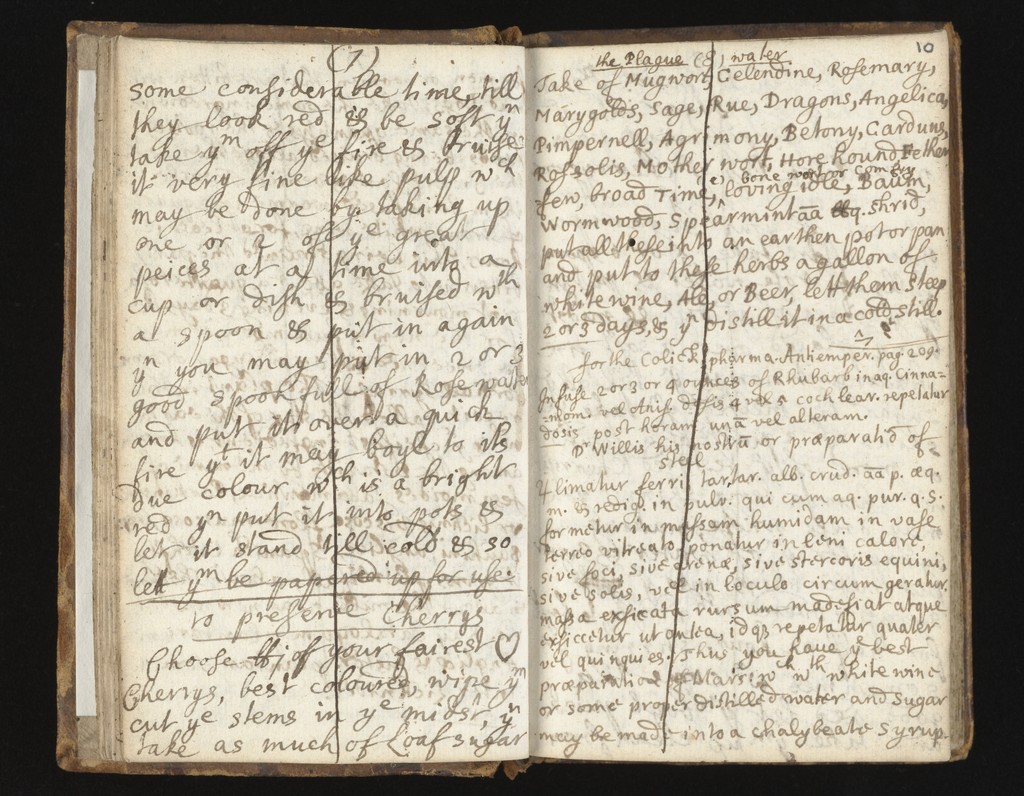 (7)
some considerable time, till
they look red & be soft yn
take ym off ye fire & bruise
it very fine like pulp wch
may be done by taking up
one or 2 of ye great
peices at a time into a
cup or dish & bruised wth
a spoon & put in again
yn you may put in 2 or 3
good spoonfull of Rose water
and put it over a quick
fire yt it may boyl to its
due colour wch is a bright
red yn put it into pots &
let it stand till cold & so
lett ym be papered up for use.
to preserve Cherrys
Choose of your fairest
Cherrys, best coloured, wipe ym
cut ye stems in ye midst, yn
take as much of Loaf sugar
10
the Plague (8) water
Take of Mugwort Celendine, Rosemary,
Marygolds, Sage, Rue, Dragons, Angelica,
Pimpernell, Agrimony, Betony, Carduus,
Rossolis, Motherwort, Hore hound Fether
few, broad Time, bone wort or Comfry loving idle, Baum,
Wormwood, Spearmint āā q. shrid,
put all these into an earthen pot or pan
and put to these herbs a gallon of
white wine, Ale, or Beer, lett them steep
2 or 3 days, & yn distill it in a cold still.
for the Colick pharma. Antiemper. pag. 209.
Infuse 2 or 3 or 4 ounces of Rhubarb in aq. Cinna-
mom. vel Anis. dosis 4 vel 5 cochlear. repetatur
dosis post horam unā vel alteram.
Dr Willis his nostrū or præparatiō of
steel
℞ limatur ferri tartar. alb. crud. āā p. æq.
m. & redig. in pulv. qui cum aq. pur. q. s.
formetur in massam humidam in vase
terreo vitreato ponatur in leni calore,
sive foci, sive arenæ, sive stercoris equini,
sive solis, vel in loculo circum geratur.
massa exsiccata rursum madefiat atque
exsiccetur ut antea, idq; repetatur quater
vel quinquies. Thus you have ye best
præparation of Mars: wch wth white wine
or some proper distilled water and Sugar
may be made into a chalybeate Syrup.